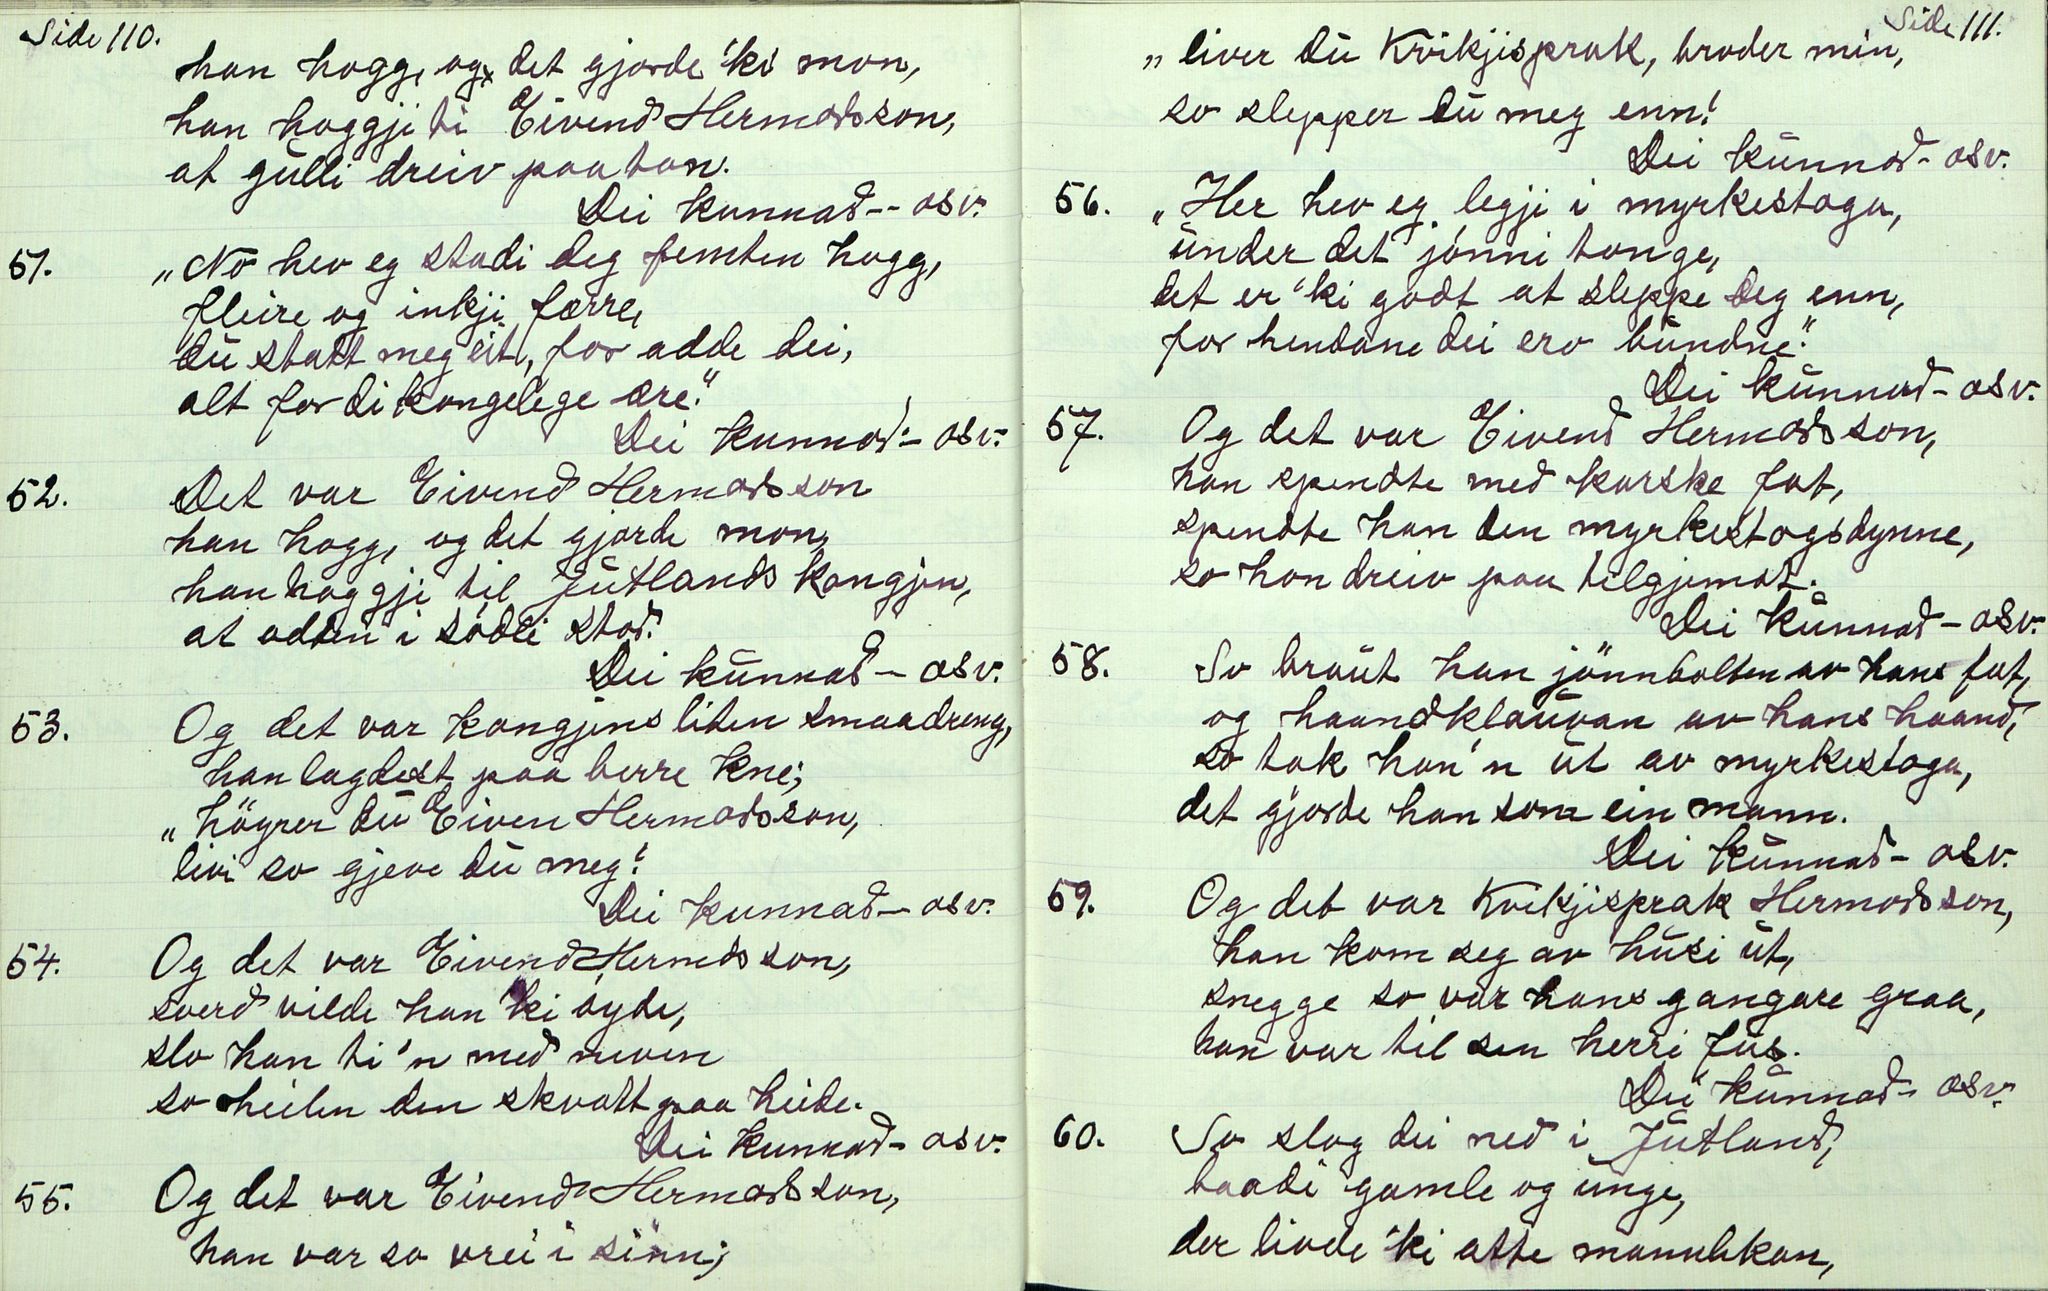 Side 110.
han hogg, og det gjorde 'ki mon,
han hoggji ti Eivend Hermodsson,
at gulli dreiv paa ton.
Dei kunnad -- osv.
51. „No hev eg stadi deg femten hogg,
fleire og inkji færre,
du statt meg eit, for adde dei,
alt for di kongelege ære."
Dei kunnad - osv.
52. Det var Eivend Hermodsson
han hogg, og det gjorde mon,
han hoggji til Jutlands kongjen,
at odden i södli stod.
Dei kunnad - osv.
53. Og det var kongjens liten smaadreng,
han lagdest paa berre kne;
„höyrer du Eiven Hermodsson,
livi so gjeve du meg!
Dei kunnad - osv.
54. Og det var Eivend Hermodsson,
sverd vilde han 'ki öyde,
slo han ti 'n med neven
so heilen den skvatt paa heide.
Dei kunnad - osv.
55. Og det var Eivend Hermodsson,
han var so vrei i sinn;
Side 111.
„liver du Kvikjisprak, broder min,
so slepper du meg enn!
Dei kunnad - osv.
56. „Her hev eg legji i myrkestogu,
under det jönni tonge,
det er 'ki godt at sleppe deg enn,
for hendane dei ero bundne."
Dei kunnad - osv.
57. Og det var Eivend Hermodsson,
han spendte med karske fot,
spendte han den myrkestogsdynne,
so hon dreiv paa tilgjemot.
Dei kunnad - osv.
58. So braut han jönnbolten av hans fot,
og haandklauvan av hans haand,
so tok han 'n ut av myrkestogu,
det gjorde han som ein mann.
Dei kunnad - osv.
59. Og det var Kvikjisprak Hermodsson,
han kom seg av husi ut,
snegge so var hans gangare graa,
han var til sin herri fus.
Dei kunnad - osv.
60. So slog dei ned i Jutland,
baadi gamle og unge,
der livde 'ki atte